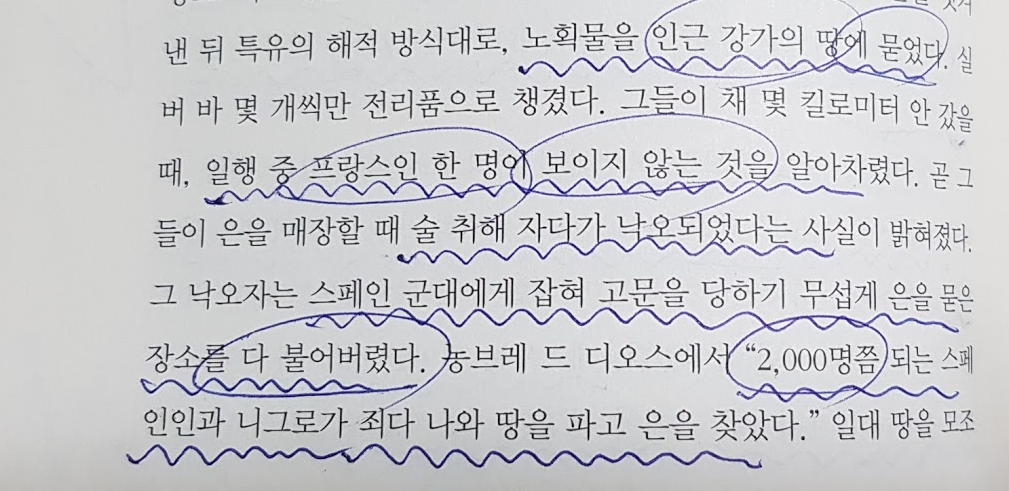 낸 뒤 특유의 해적 방식대로, 노획물을 인근 강가의 땅에 묻었다. 실
버 바 몇 개씩만 전리품으로 챙겼다. 그들이 채 몇 킬로미터 안 갔을
때, 일행 중 프랑스인 한 명이 보이지 않는 것을 알아차렸다. 곧 그
들이 은을 매장할 때 술 취해 자다가 낙오되었다는 사실이 밝혀졌다.
그 낙오자는 스페인 군대에게 잡혀 고문을 당하기 무섭게 은을 묻은
장소를 다 불어버렸다. 농브레 드 디오스에서 “2,000명쯤 되는 스페
인인과 니그로가 죄다 나와 땅을 파고 은을 찾았다.” 일대 땅을 모조